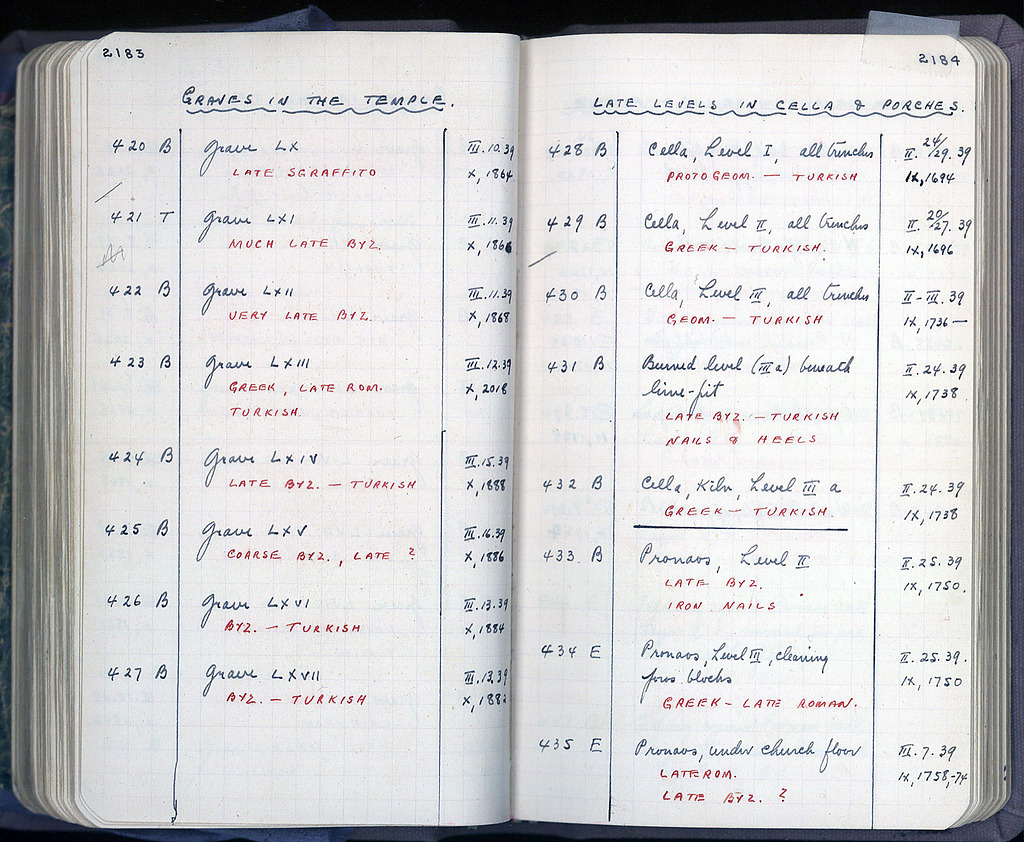 2183
GRAVES IN THE TEMPLE.
420 B Grave LX III.10.39
LATE SGRAFFITO X, 1864
421 T Grave LXI III.11.39
MUCH LATE BYZ. X, 1866
422 B Grave LXII III.11.39
VERY LATE BYZ. X, 1868
423 B Grave LXIII III.12.39
GREEK, LATE ROM. X, 2018
TURKISH.
424 B Grave LXIV III.15.39
LATE BYZ. — TURKISH X, 1888
425 B Grave LXV III.16.39
COARSE BYZ., LATE ? X, 1886
426 B Grave LXVI III.13.39
BYZ. — TURKISH X, 1884
427 B Grave LXVII III.13.39
BYZ. — TURKISH X, 1882
2184
LATE LEVELS IN CELLA & PORCHES.
428 B Cella, Level I, all trenches II.24/29.39
PROTOGEOM. — TURKISH IX, 1694
429 B Cella, Level II, all trenches II.20/27.39
GREEK — TURKISH. IX, 1696
430 B Cella, Level III, all trenches II–III.39
GEOM. — TURKISH IX, 1736 —
431 B Burned level (IIIa) beneath II.24.39
lime-pit IX, 1738
LATE BYZ. — TURKISH
NAILS & HEELS
432 B Cella, Kiln, Level III a II.24.39
GREEK — TURKISH IX, 1738
433. B Pronaos, Level II II.25.39
LATE BYZ. IX, 1750.
IRON NAILS
434 E Pronaos, Level III, cleaning II.25.39.
poros blocks IX, 1750
GREEK — LATE ROMAN.
435 E Pronaos, under church floor III.7.39
LATE ROM. IX, 1758,-74
LATE BYZ. ?